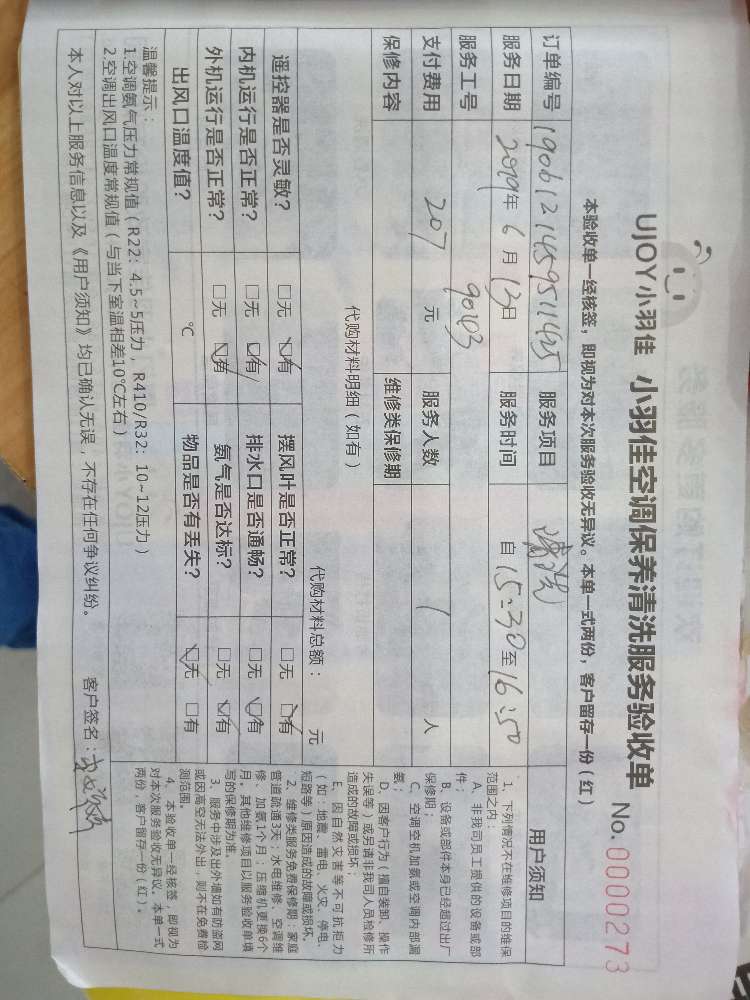 UJOY小羽佳 小羽佳空调保养清洗服务验收单 No. 0000273
本验收单一经核签，即视为对本次服务验收无异议。本单一式两份，客户留存一份（红）
订单编号 1906121459511425 服务项目 清洗
服务日期 2019年 6 月 13日 服务时间 自 15:30 至 16:50
服务工号 90103
支付费用 207 元 服务人数 1 人
保修内容 维修类保修期
代购材料明细（如有） 代购材料总额： 元
遥控器是否灵敏？ □无 □有 摆风叶是否正常？ □无 □有
内机运行是否正常？ □无 □有 排水口是否通畅？ □无 □有
外机运行是否正常？ □无 □有 氨气是否达标？ □无 □有
出风口温度值？ ℃ 物品是否有丢失？ □无 □有
温馨提示：
1.空调氨气压力常规值（R22：4.5~5压力，R410/R32：10~12压力）
2.空调出风口温度常规值（与当下室温相差10℃左右）
本人对以上服务信息以及《用户须知》均已确认无误，不存在任何争议纠纷。 客户签名：
用户须知
1、下列情况不在维修项目的维保
范围之内：
A、非我司员工提供的设备或部
件；
B、设备或部件本身已经超过出厂
保修期；
C、空调空机加氨或空调内部漏
氨；
D、因客户行为（擅自装卸、操作
失误等）或另请非我司人员检修所
造成的故障或损坏；
E、因自然灾害等不可抗拒力
（如：地震、雷电、火灾、停电、
短路等）原因造成的故障或损坏。
2、维修类服务免费保修期：家庭
管道疏通3天；水电维修、空调维
修、加氨1个月；压缩机更换6个
月。其他维修项目以服务验收单填
写的保修期为准。
3、服务中涉及出外墙如有防盗网
或因高空无法外出，则不在免费检
测范围。
4、本验收单一经核签，即视为
对本次服务验收无异议。本单一式
两份，客户留存一份（红）。